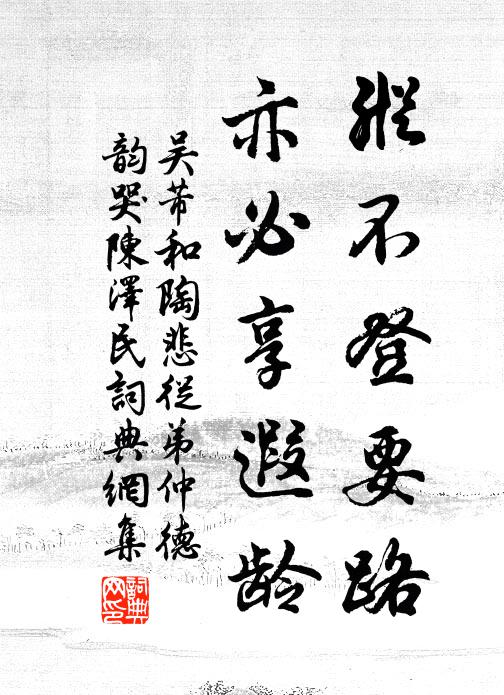 縱不登要路
亦必享遐齡
吴芾和陶悲從弟仲德
韵哭陳澤民詞典網集
詞典网印